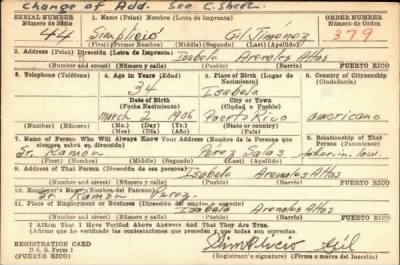 Change of Add. See C. Sheet.
SERIAL NUMBER 1. Name (Print) Nombre (Letra de Imprenta) ORDER NUMBER
Número de Serie Número de Orden
44 Simplicio Gil Jiménez 379
(First) (Primero) (Middle) (Segundo) (Last) (Apellido)
2. Address (Print) Dirección (Letra de Imprenta)
Isabela Arenales Altos
PUERTO RICO
Number and street (Número y calle) (Town) (Pueblo)
3. Telephone (Teléfono) 4. Age in Years (Edad) 5. Place of Birth (Lugar de Nacimiento) 6. Country of Citizenship (Ciudadanía)
34 Isabela
Date of Birth City or Town
(Fecha Nacimiento) (Ciudad, o Pueblo)
March 2 1906 Puerto Rico americano
(Mo.) (Day) (Yr.) State or country
(Mes) (Día) (Año) (Estado o país)
7. Name of Person Who Will Always Know Your Address (Nombre de la Persona que siempre sabrá su dirección) 8. Relationship of That Person (Parentesco)
Sr. Ramon Pérez Salas
(First) (Primero) (Middle) (Segundo) (Last) (Apellido)
9. Address of That Person (Dirección de esa persona)
Isabela Arenales Altos
PUERTO RICO
Number and street (Número y calle) (Town) (Pueblo)
10. Employer's Name (Nombre del Patrono)
Sr. Ramon Perez
11. Place of Employment or Business (Dirección del empleo o negocio)
Isabela Arenales Altos
PUERTO RICO
Number and street (Número y calle) (Town) (Pueblo)
I Affirm That I Have Verified Above Answers And That They Are True.
(Afirmo que he verificado las contestaciones que preceden y que todas son correctas.
REGISTRATION CARD
D S S Form 1
Simplicio Gil
(Registrant's signature) (Firma o marca del Inscrito)